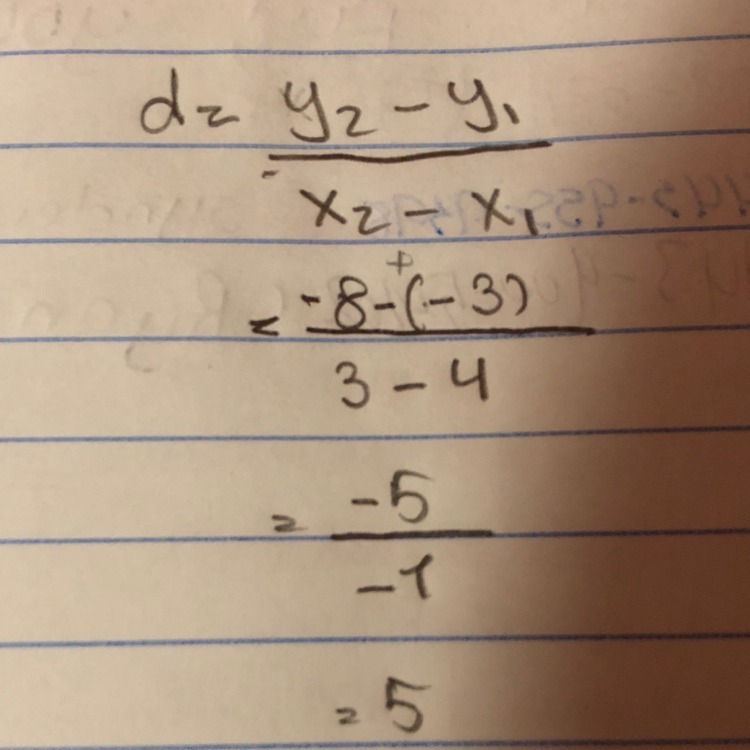 d = y₂ - y₁
x₂ - x₁
+
= -8-(-3)
3 - 4
= -5
-1
= 5